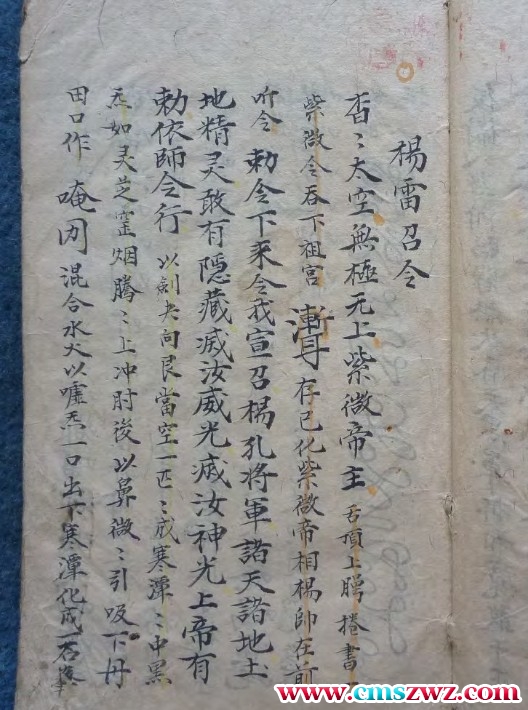 楊雷召令
杳〻太空無極元上紫微帝主 舌頂上腭捲書
紫微令吞下祖宮 存已化紫微帝相楊師在前
听令 勅令下来令我宣召楊孔將軍諸天諸地土
地精灵敢有隠藏滅汝威光滅汝神光上帝有
勅依師令行 以剣夬向艮當空一匹〻成寒潭〻中黑
炁如灵芝 烟騰〻上冲肘後以鼻微〻引吸下丹
田口作 唵 混合水火以嘘炁一口出下寒潭化成一石
www.cmszwz.com